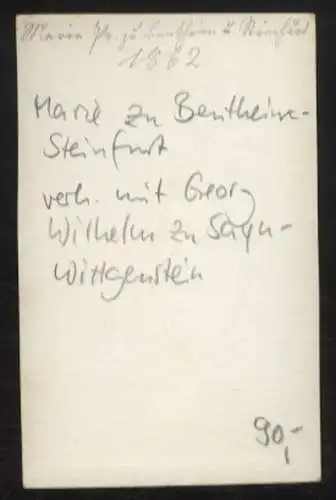 Marie Pr. zu Bentheim u Steinfurt
1862
Marie zu Bentheim-
Steinfurt
verh. mit Georg
Wilhelm zu Sayn-
Wittgenstein
90,-